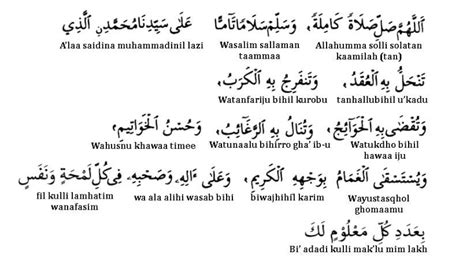 اَللّٰهُمَّ صَلِّ صَلَاةً كَامِلَةً ، وَسَلِّمْ سَلَامًا تَآمًّا عَلَى سَيِّدِنَا مُحَمَّدِنِ الَّذِي
A'laa saidina muhammadinil lazi Wasalim sallaman taammaa Allahumma solli solatan kaamilah (tan)
تَنْحَلُّ بِهِ الْعُقَدُ ، وَتَنْفَرِجُ بِهِ الْكُرَبُ ،
Watanfariju bihil kurobu tanhallubihil u'kadu
وَتُقْضَى بِهِ الْحَوَائِجُ ، وَتُنَالُ بِهِ الرَّغَائِبُ ، وَحُسْنُ الْخَوَاتِيمِ ،
Wahusnu khawaa timee Watunaalu bihirro gha' ib-u Watukdho bihil hawaa iju
وَيُسْتَسْقَى الْغَمَامُ بِوَجْهِهِ الْكَرِيمِ ، وَعَلَى ءَالِهِ وَصَحْبِهِ فِى كُلِّ لَمْحَةٍ وَنَفَسٍ
fil kulli lamhatim wanafasim wa ala alihi wasab bihi biwajhihil karim Wayustasqhol ghomaamu
بِعَدَدِ كُلِّ مَعْلُوْمٍ لَكَ
Bi' adadi kulli mak'lu mim lakh